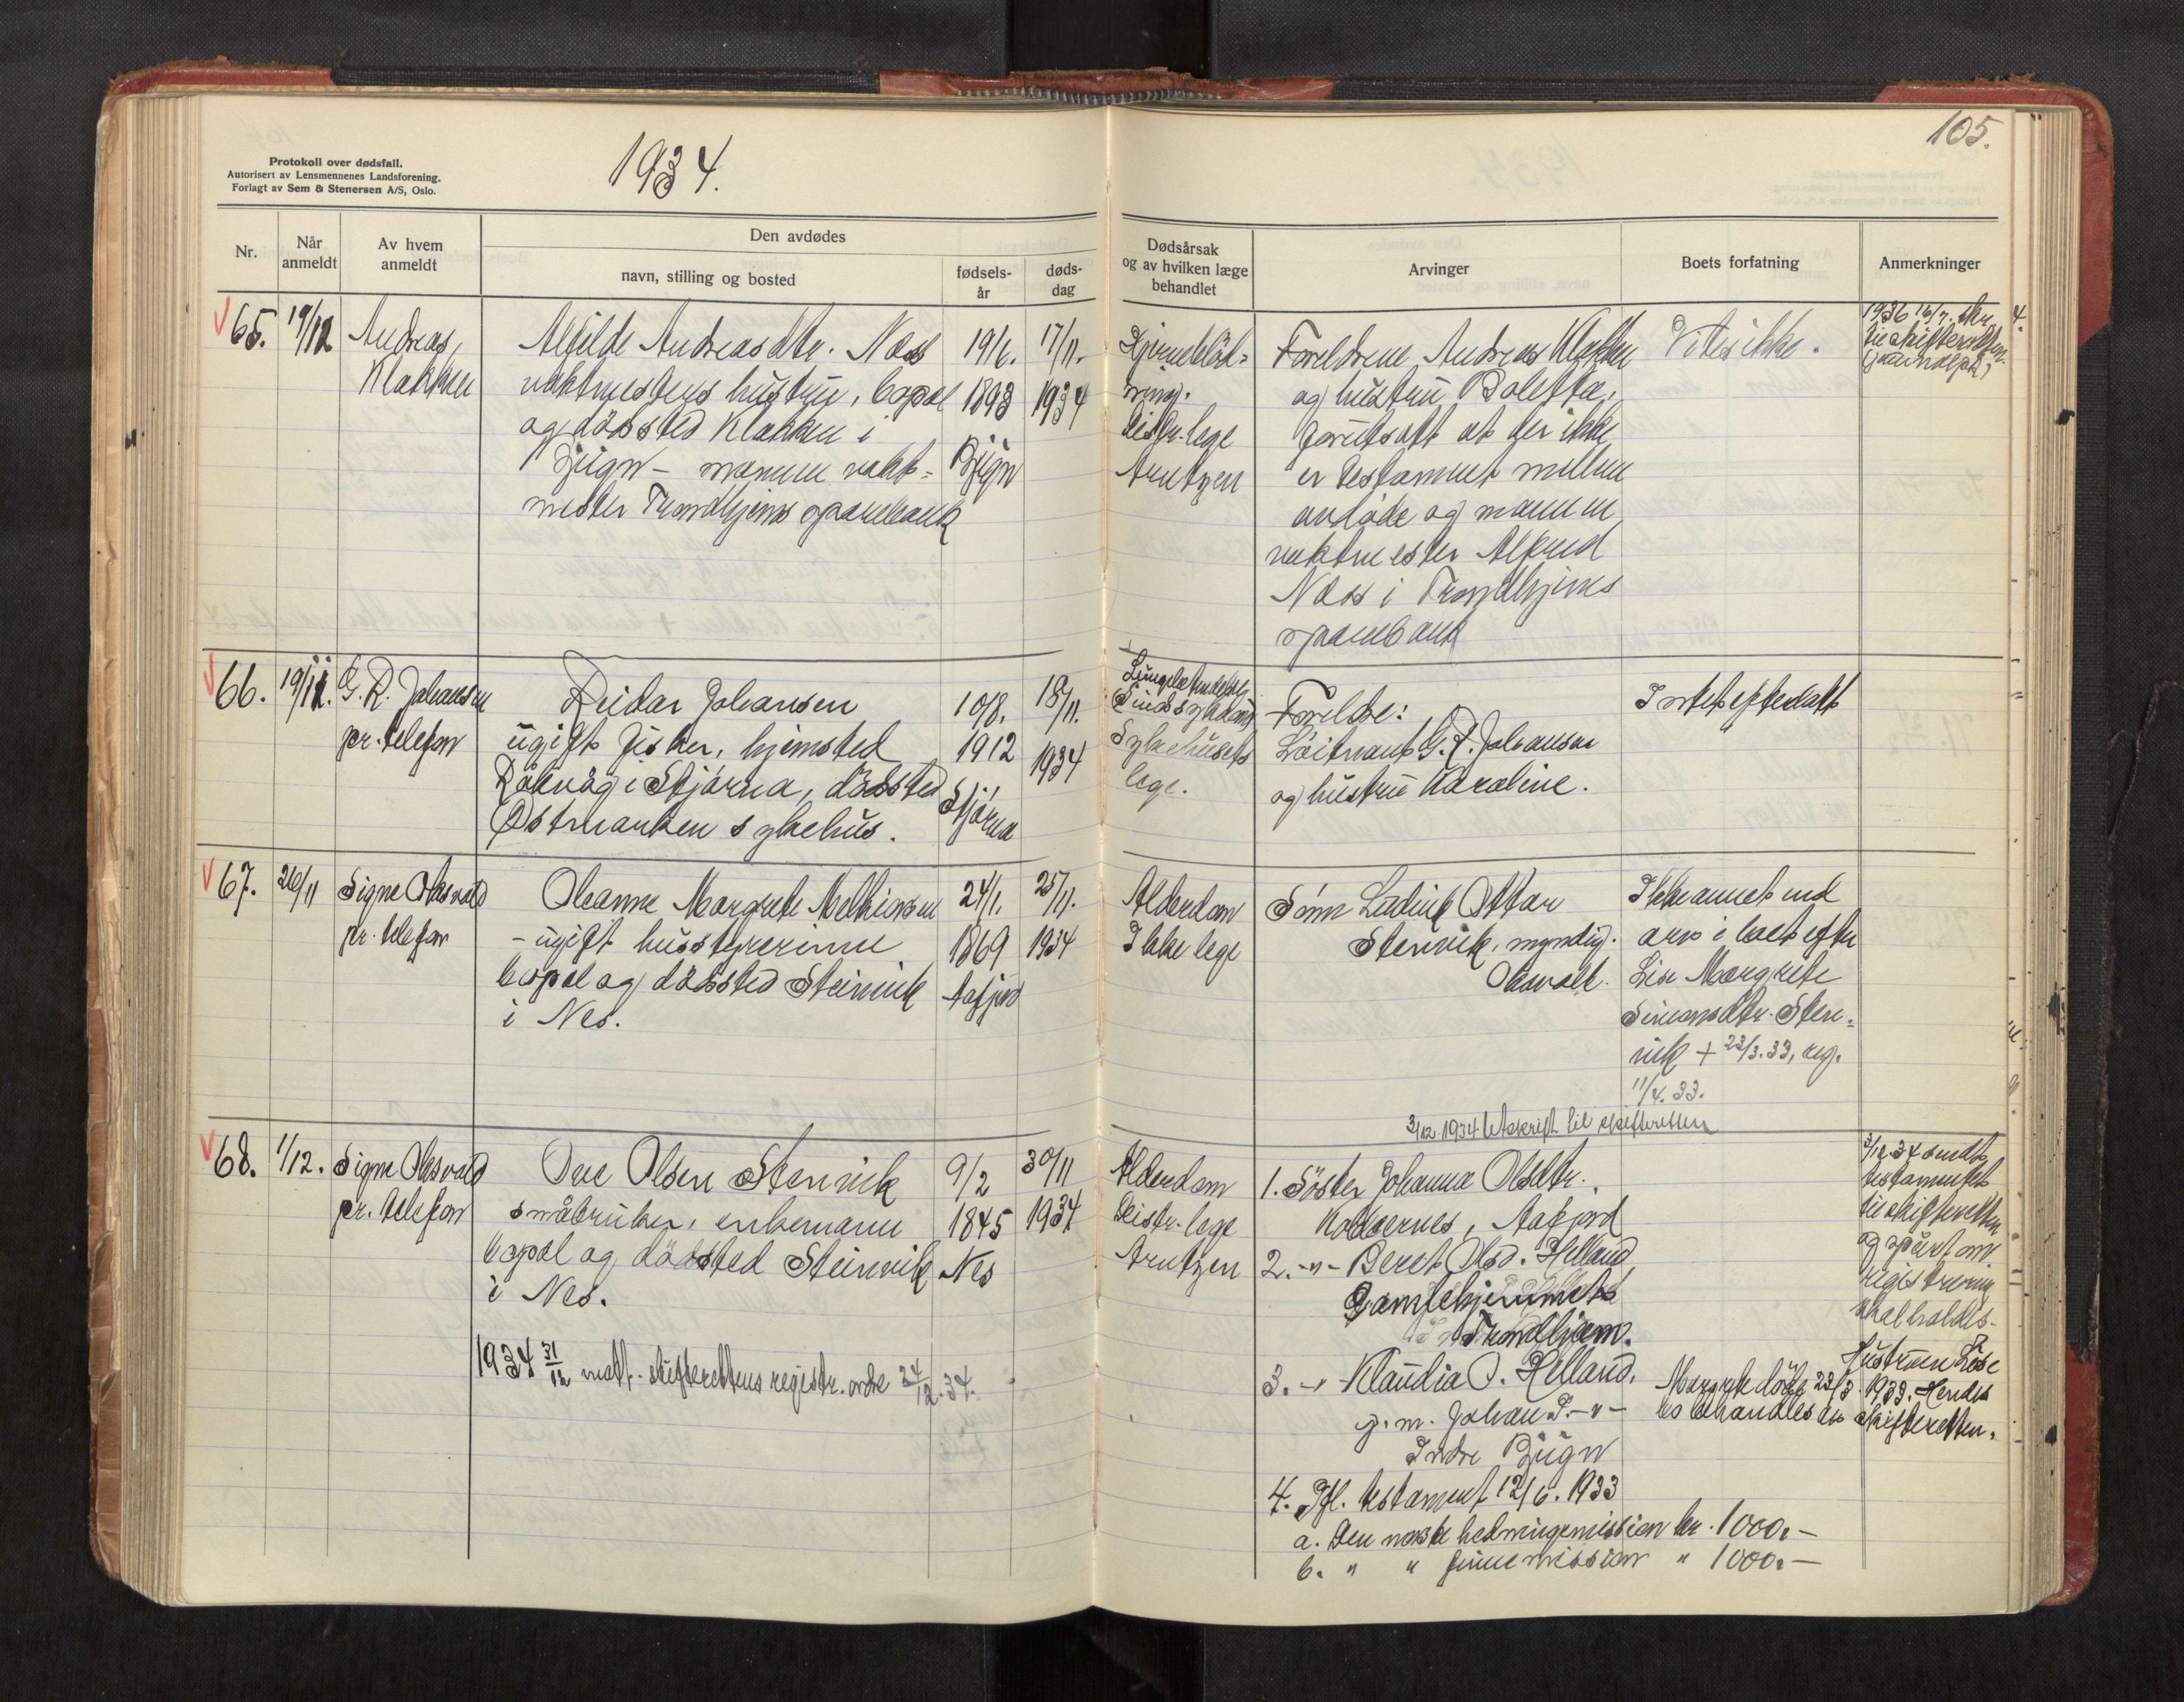 105.
Protokoll over dødsfall.
Autorisert av Lensmennenes Landsforening.
Forlagt av Sem & Stenersen A/S, Oslo.
1934.
Nr.
Når anmeldt
Av hvem anmeldt
Den avdødes
navn, stilling og bosted
fødsels-år
døds-dag
Dødsårsak og av hvilken læge behandlet
Arvinger
Boets forfatning
Anmerkninger
65.
19/12
Andreas
Klakken
Alfilde Andreasdtr. Næss
vaktmesters hustru, bopel
og dödssted Klakken i
Bjugn - mannen vakt-
mester Trondhjems sparebank
19/6.
1893
Bjugn
17/11.
1934
Hjerneblöd-
ning.
Distr.lege
Arntzen
Foreldrene Andreas Klakken
og hustru Boletta,
forutsatt at der ikke
er testament mellem
avdøde og mannen
vaktmester Alfred
Næss i Trondhjems
sparebank
Vites ikke.
1936 16/7.
til skifteretten
66.
19/11.
G. R. Johansen
pr. telefon
Reidar Johansen
ugift fisker, hjemsted
Råkvåg i Stjörna, dödssted
Östmarken sykehus.
10/8.
1912
Stjörna
18/11.
1934
Sindssykdom
Sykehusets
lege.
Foreldre:
Löitnant G. R. Johansen
og hustru Karoline.
Intet efterlatt
67.
26/11
Signe Oksvold
pr. telefon
Oleanna Margrete Melkiorsen
- ugift husstyrerinne
bopel og dödssted Steinvik
i Nes.
24/1.
1869
Aafjord
25/11.
1934
Alderdom
Ikke lege
Sönn Ludvik Ottar
Stenvik, myndig.
Oksvoll.
Ikke annet end
arv i boet efter
Lise Margrete
Simonsdtr. Sten-
vik + 22/3.33, reg.
11/4.33.
3/12.1934 Utskrift til skifteretten
68.
1/12.
Signe Oksvold
pr. telefon
Ove Olsen Stenvik
småbruker, enkemann
bopel og dödssted Steinvik
i Nes.
9/2
1845
Nes
30/11
1934
Alderdom
Distr.lege
Arntzen
1. Söster Johanna Olsdtr.
Aafjord
2. -"- Beret Olsd. Helland
Gamlehjemmet
Trondhjem.
3. -"- Klaudia O. Helland,
g. m. Johan P. -"-
Indre Bjugn
4. Ifl. testament 12/6.1933
a. Den norske hedningemission kr. 1000.-
b. " " finnemission " 1000.-
3/12.34 sendt
testamentet
til skifteretten
og spurt om
registrering
skal holdes.
Hustruen Lise
Margrete döde 22/3 1933. Hendes
bo behandles av skifteretten.
1934 31/12 mott. skifterettens registr. ordre 24/12.34.